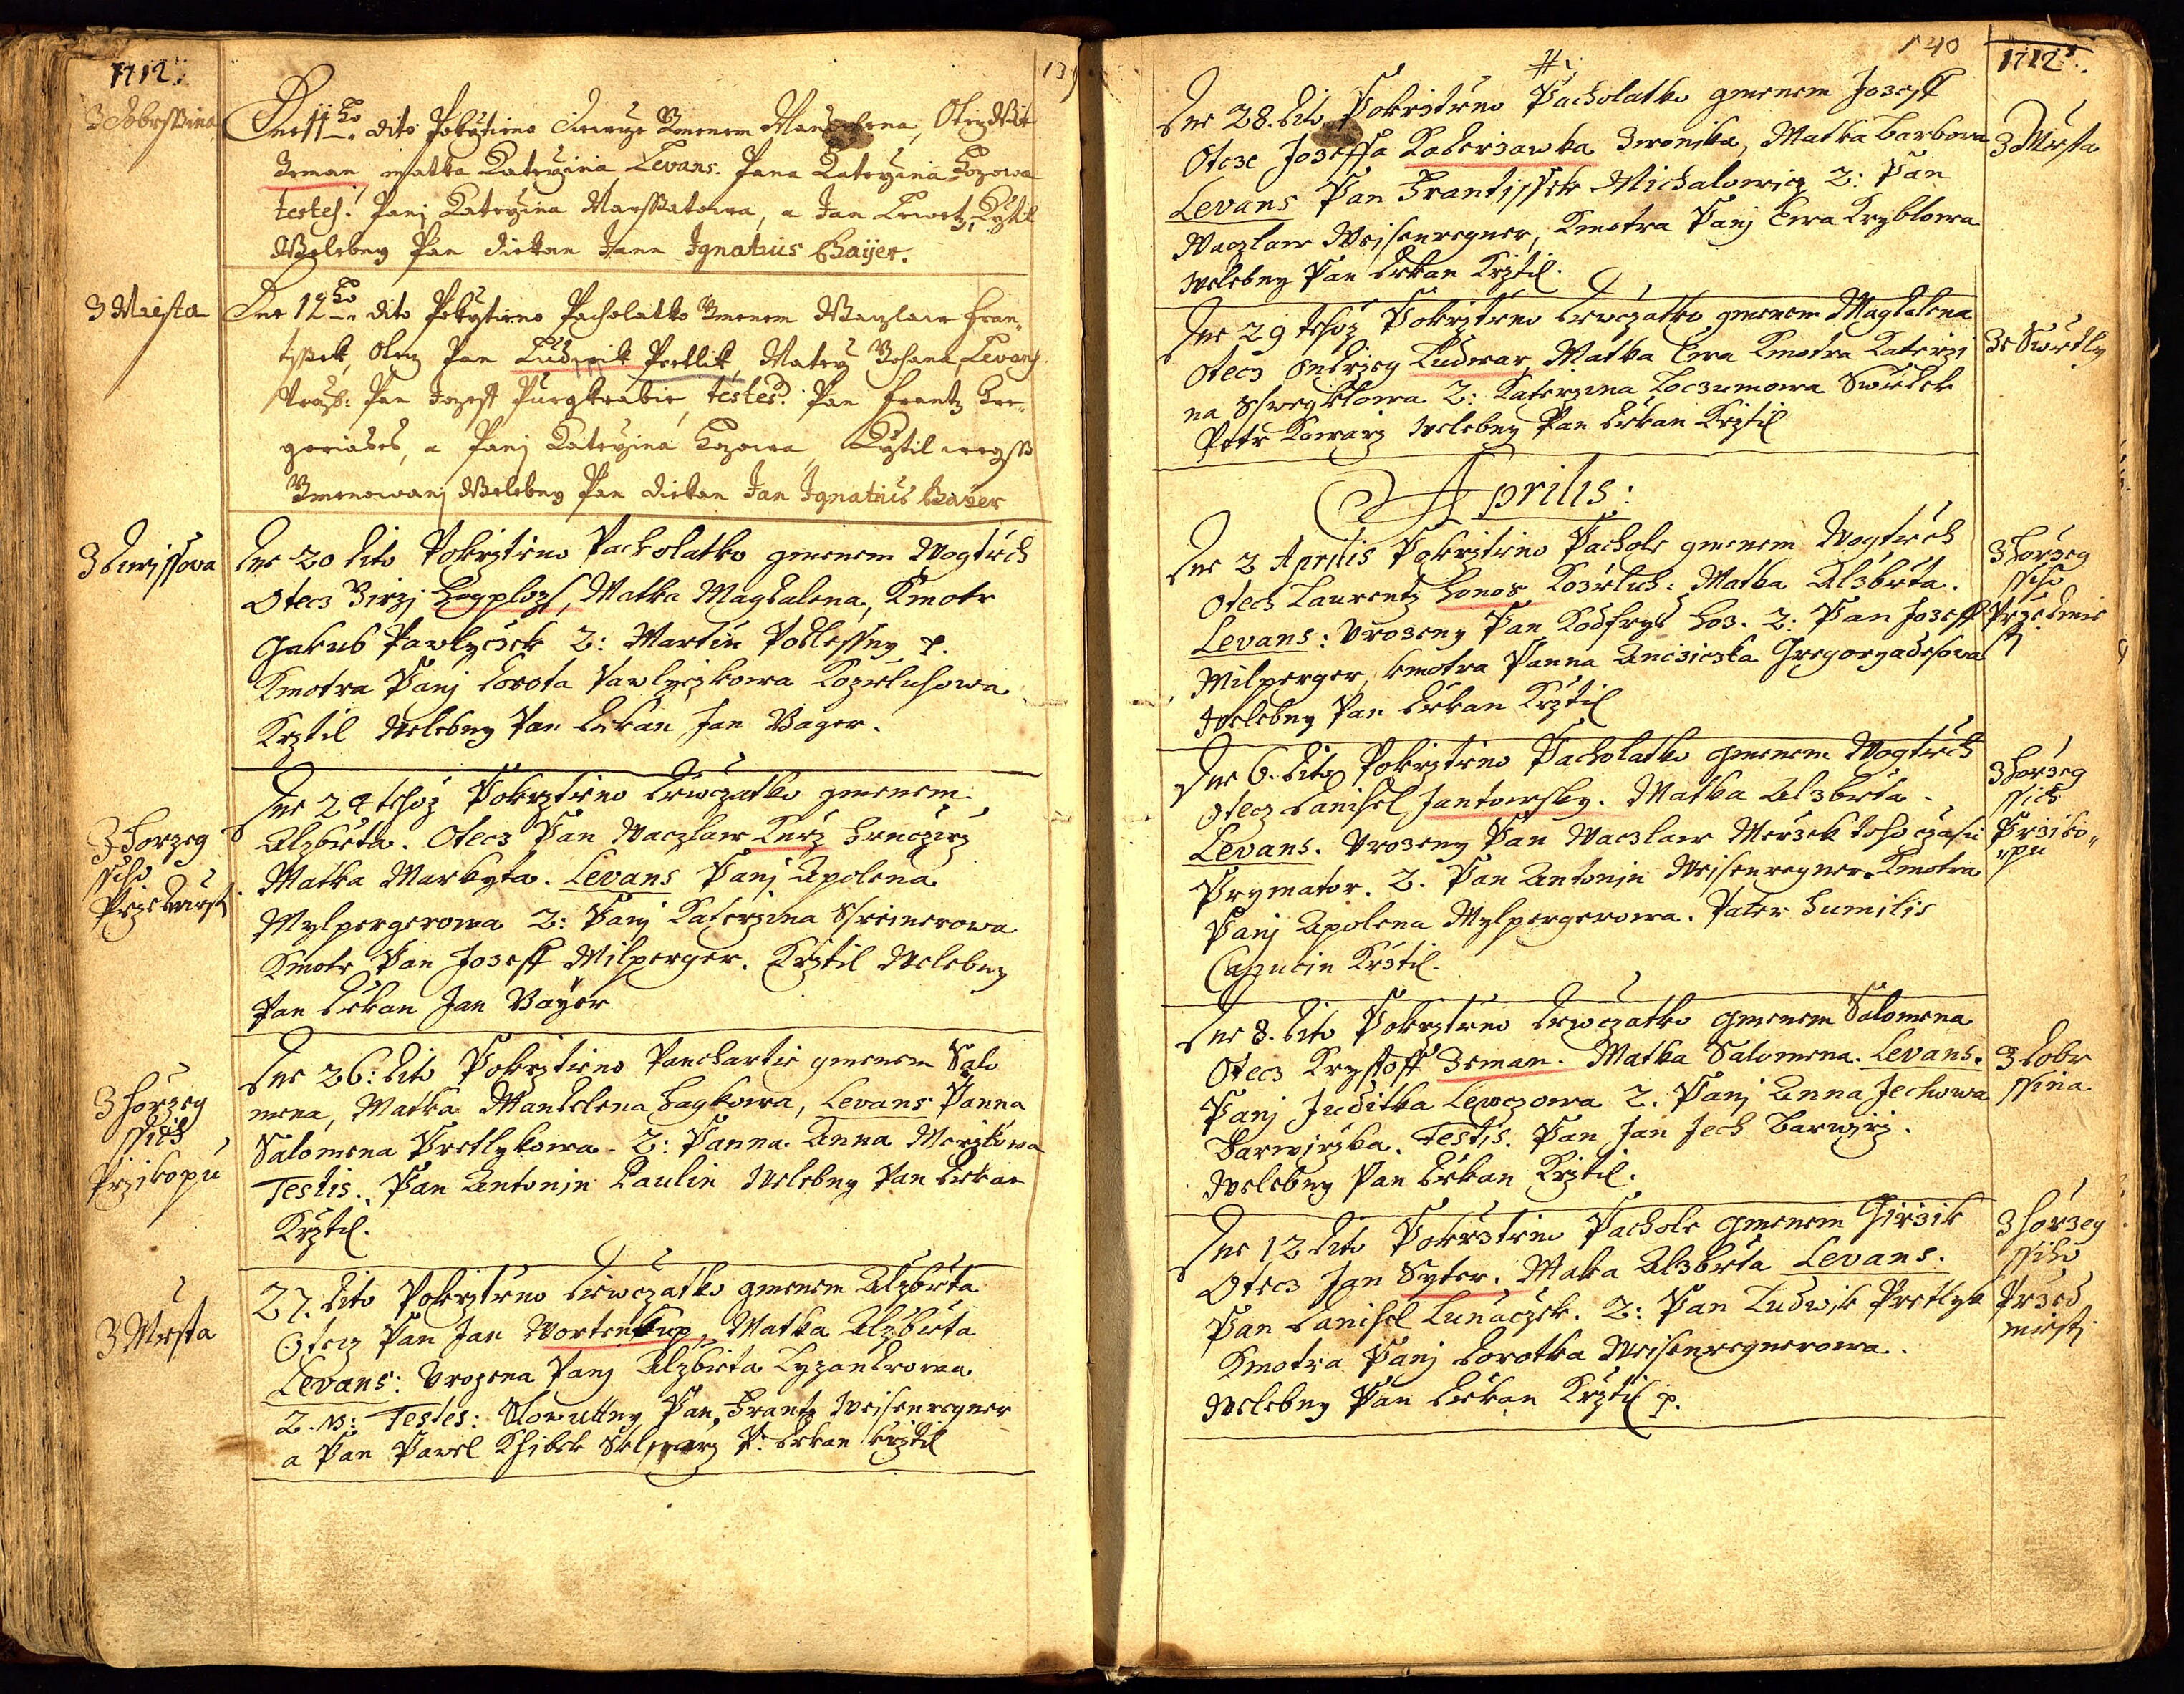 1712.
139
Z Dobrssina
Dne 11ho dito Pokrztieno Diewcze Gmenem Mandelena, Otecz Wit
Zeman, matka Katerzina, Levans. Pana Katerzina Hozowa
testes: Panj Katerzina Marssatowa, a Jan Lewetz, Krztil
Welebny Pan Diekan Jann Ignatius Baijer.
Z Miesta
Dne 12ho dito Pokrztieno Pacholatko Gmenem Waczlaw Fran-
tissek, Otecz Pan Ludwik Prettlik, Matky Johana, Levans
Pan Jozeff Purgkrabie, testes: Pan Frantz Gre-
goriades, a Panj Katerzina Hozowa, Krztil wegss
Gmenowanj Welebny Pan Diekan Jan Ignatius Baier
Dne 20 dito Pokrztieno Pacholatko gmenem Wogtiech
Otecz Girzj, Matka Magdalena, Kmotr
Gakub Pawlyczek 2: Martin Podlessny p.
Kmotra Panj Dorota Pawlyczkowa Kozeluhowa
Krztil Welebny Pan Diekan Jan Bager.
Z Horzeg
ssiho
Przedmiesti
Dne 24 tehoz Pokrztieno Diewczatko gmenem
Alzbieta. Otecz Pan Waczlaw Kurz Hrnczirz
Matka Markyta. Levans Panj Apolena
Mylpergerowa 2: Panj Katerzina Steinerowa
Kmotr Pan Jozeff Milperger. Krztil Welebny
Pan Diekan Jan Bayer
Z Horzeg
ssich
Przikopu
Dne 26: dito Pokrztieno Panchartie gmenem Salo
mena, Matka Mandelena Hagkowa, Levans Panna
Salomena Pretlykowa. 2: Panna Anna Merzkowa
Testis. Pan Antonin Paulin Welebny Pan Diekan
Krztil.
Z Miesta
27. dito Pokrztieno Diewczatko gmenem Alzbieta
Otecz Pan Jan Wortenkup, Matka Alzbieta
Levans: Urozena Panj Alzbieta Lyzandrowa
2. Testes: Slowutny Pan Frantz Weisenregner
a Pan Pawel P: Diekan krztil
140
1712.
Dne 28. dito Pokrztieno Pacholatko gmenem Jozeff
Otcze Jozeffa Kaderzawka Zwonika, Matka Barbora
Levans Pan Frantissek Michalowicz 2: Pan
Waczlaw Weisenregner, Kmotra Panj Ewa Kryblowa
Welebny Pan Diekan Krztil.
Z Miesta
Dne 29 tehoz Pokrztieno Diewczatko gmenem Magdalena
Otecz Ondrzeg Ludwar, Matka Ewa Kmotra Katerzi
na 2: Katerzina Swiedek
Petr Kowarz Welebny Pan Diekan Krztil
Ze Swietly
Aprilis:
Dne 2 Aprilis Pokrztieno Pachole gmenem Wogtiech
Otecz Laurentz Honos Kozieluh: Matka Alzbieta.
Levans: Urozeny Pan Kodfryd Hoz. 2: Pan Jozeff
Milperger, kmotra Panna Anczicka Gregoryadesowa
Welebny Pan Diekan Krztil
Z Horzeg
ssiho
Przedmie
sti
Dne 6. dito Pokrztieno Pacholatko gmenem Wogtiech
Otecz Daniel Jantowsky. Matka Alzbieta.
Levans. Urozeny Pan Waczlaw Merzek toho czasu
Prymator. 2. Pan Antonin Weisenregner. Kmotra
Panj Apolena Mylpergerowa. Pater Humilis
Capucin Krztil.
Z Horzeg
ssich
Prziko-
pu
Dne 8. dito Pokrztieno Diewczatko gmenem Salomena
Otecz Krysstoff Zeman. Matka Salomena. Levans.
Panj Juditka Lewczowa 2. Panj Anna Jechowa
Barwirzka. Testis. Pan Jan Jech Barwirz.
Welebny Pan Diekan Krztil.
Z Dobr
ssina
Dne 12 dito Pokrztieno Pachole gmenem Girzik
Otecz Jan Syter. Matka Alzbieta Levans.
Pan Daniel Lunaczek. 2: Pan Ludwik Pretlyk
Kmotra Panj Dorotka Weisenregnerowa.
Welebny Pan Diekan Krztil p.
Z Horzeg
ssiho
Przed
miesti